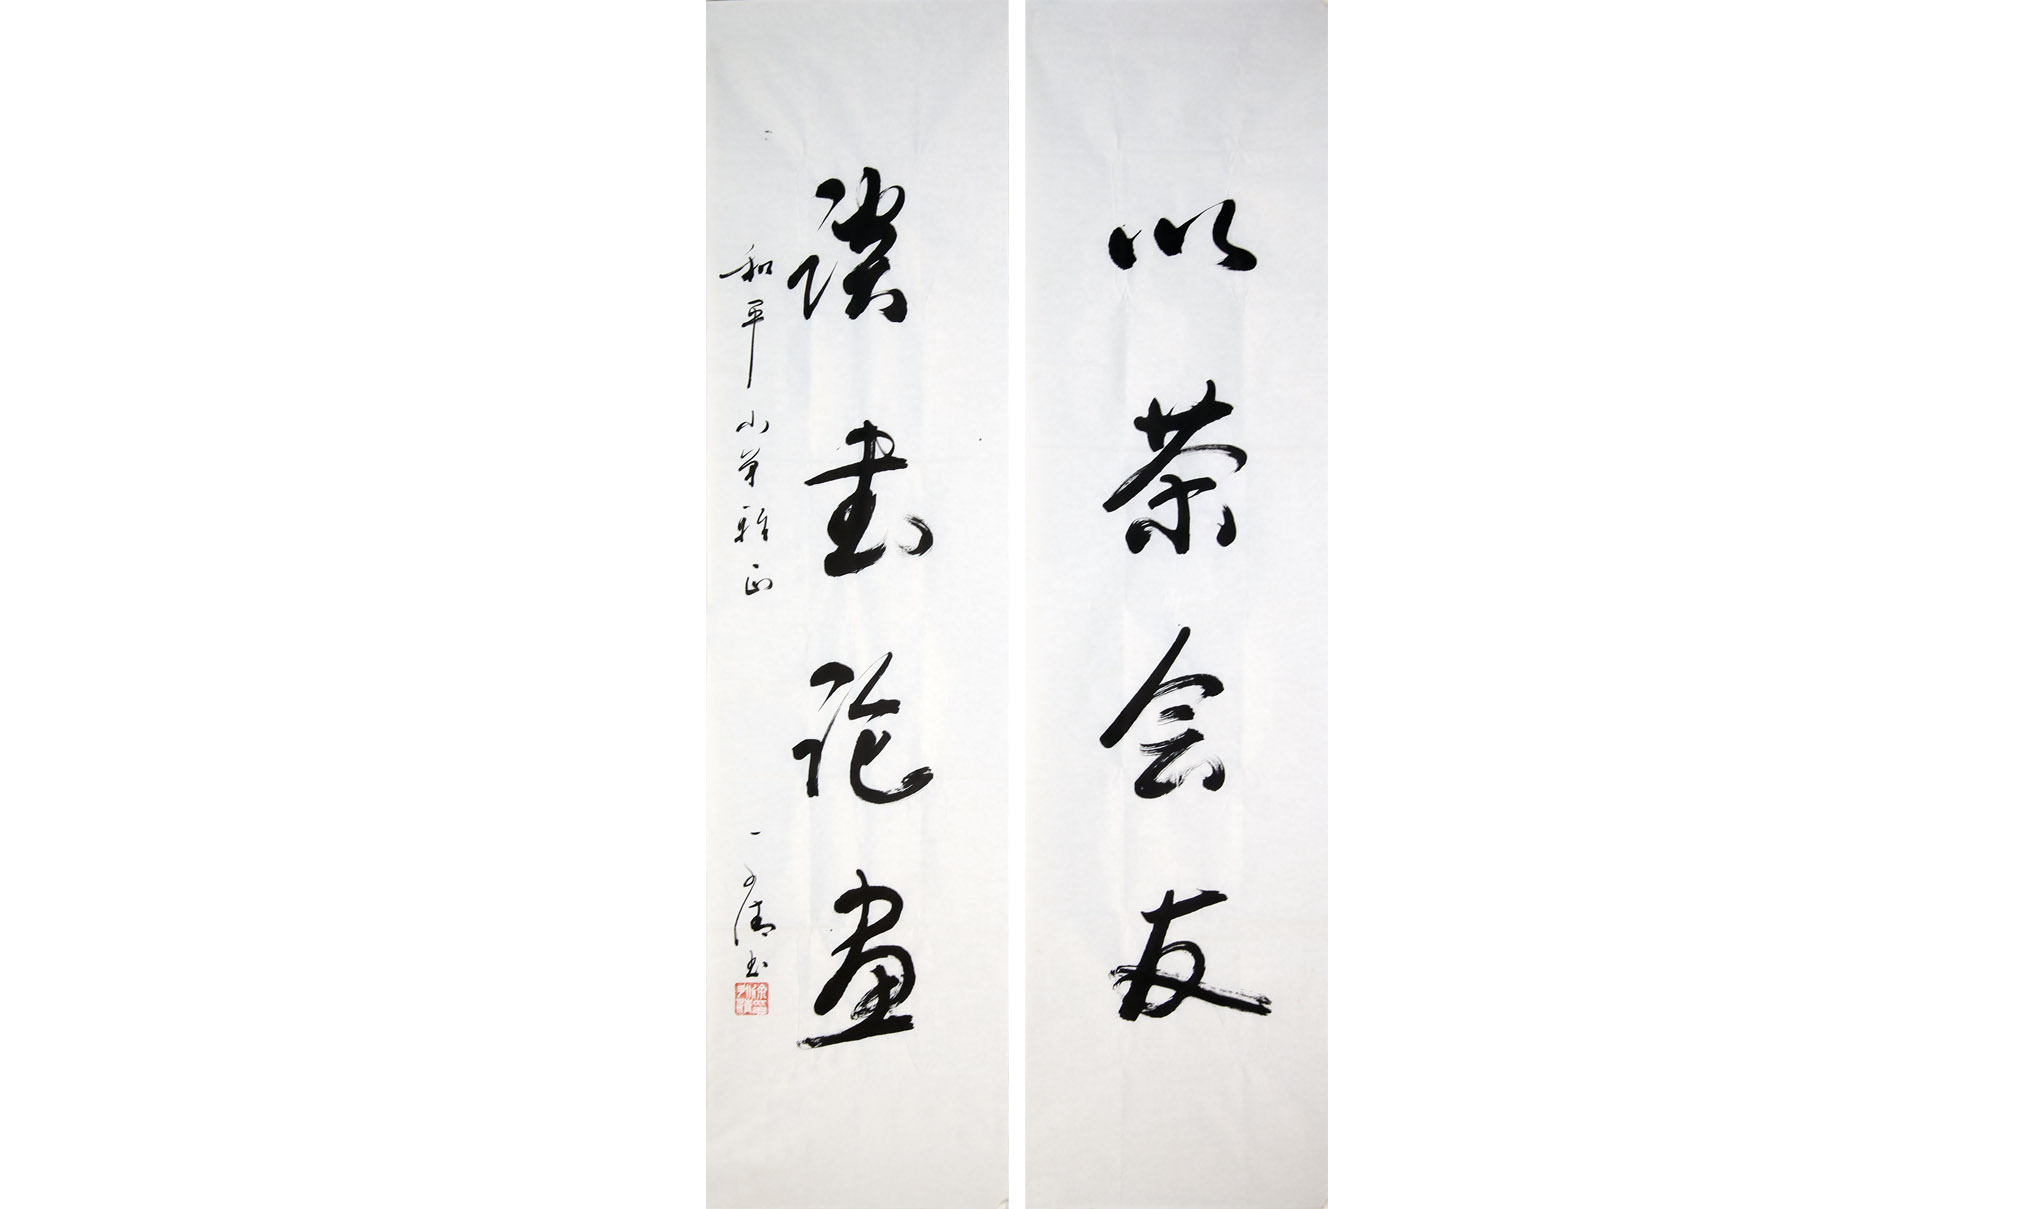 以茶会友
谈书论画
和平小弟雅正
一清书